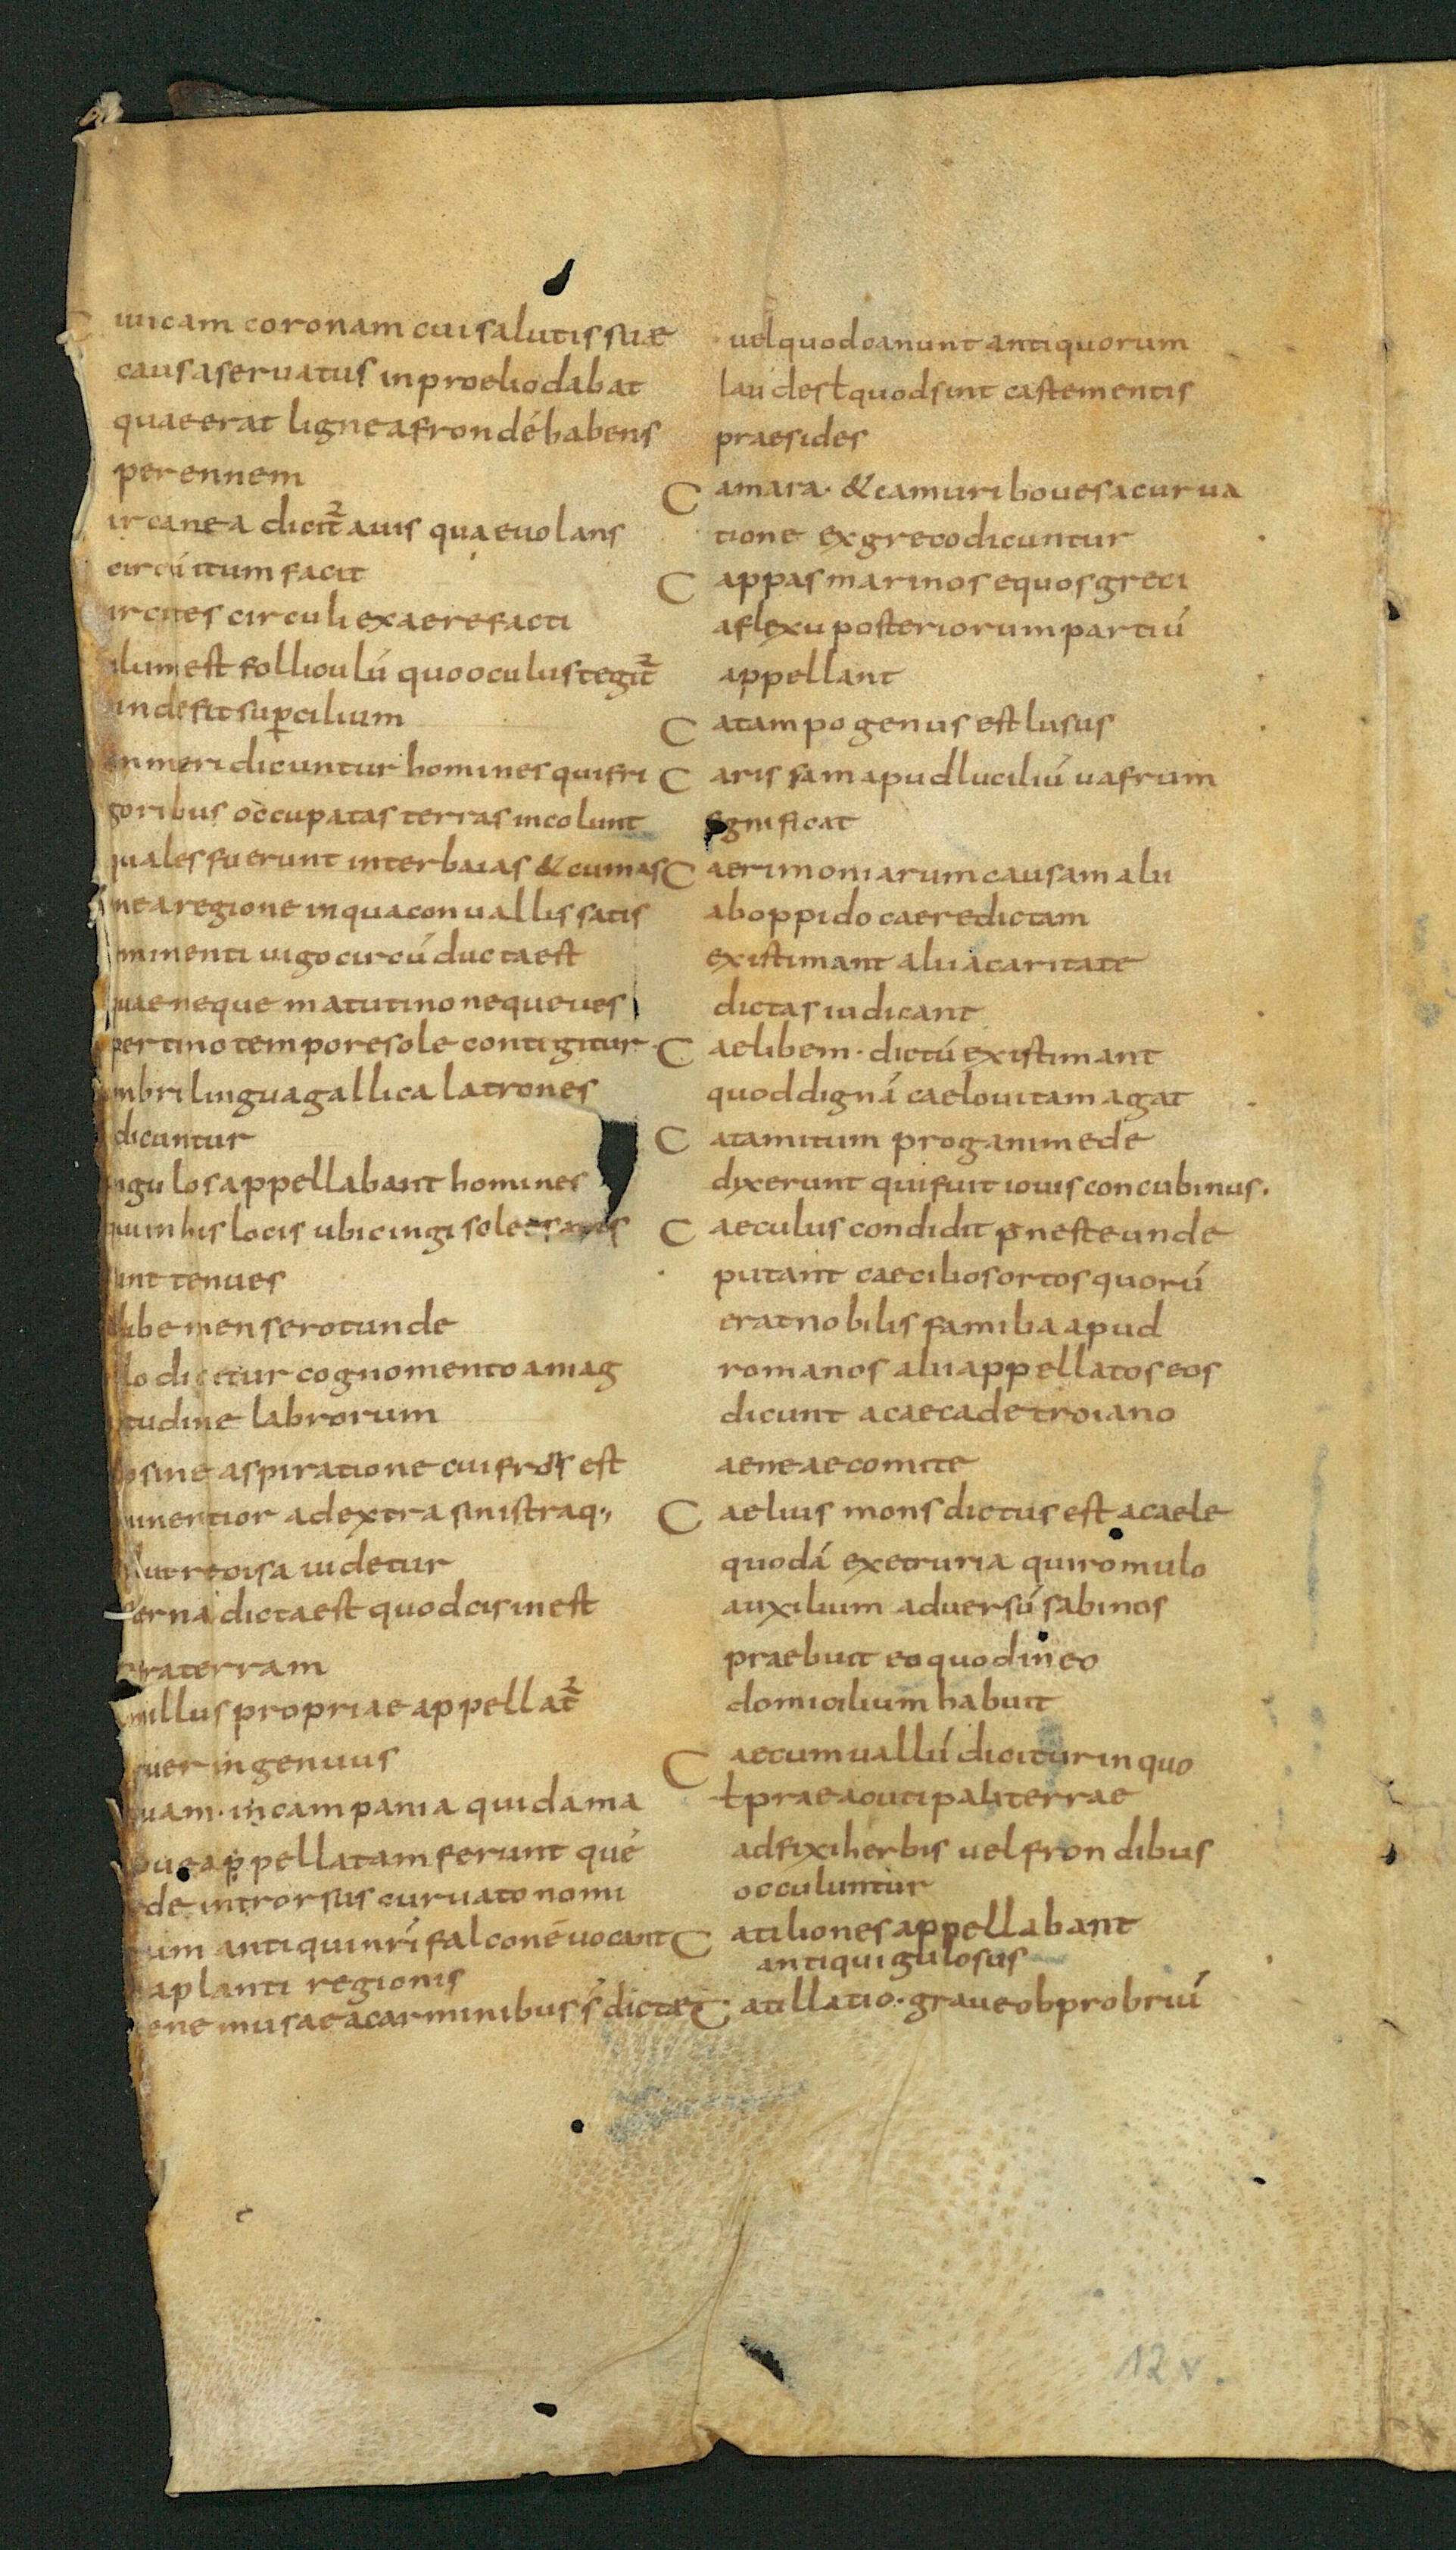 iuicam coronam cui salutis suae
causa seruatus in proelio dabat
quae erat lignea frondé habens
perennem
ircanea dicit̄ auis quae uolans
circúitum facit
ircites circuli ex aere facti
ilium est folliculú quo oculus tegit̄
inde fit sup̱cilium
mmeri dicuntur homines qui fri
goribus occupatas terras incolunt
uales fuerunt inter baias & cumas
ne a regione in qua conuallis satis
minenti uigo circú ducta est
uae neque matutino neque ues
pertino tempore sole contigitur
mbri lingua gallica latrones
dicuntur
ngulos appellabant homines
ui in his locis ubi cingi solet
unt tenues
libe mense rotunde
lo dicetur cognomento a mag
tudine labrorum
o sine aspiratione cui fros est
minentior a dextra sinistraq;
ut recisa uidetur
erna dicta est quod cis in est
ra terram
millus propriae appellat̄
uer ingenuus
uam. in campania quidam a
pue appellatam ferunt qué
de introrsus curuato nomi
um antiqui nrí falconé uocant
a planti regionis
ene musae a carminibus s̄ dictae
uel quod canunt antiquorum
laudes ł quod sint caste mentis
praesides
Camara. & camuri boues a curua
tione ex greco dicuntur
Cappas marinos equos greci
a flexu posteriorum partiú
appellant
Catampo genus est lusus
Carissam apud luciliú uafrum
significat
Caerimoniarum causam alii
ab oppido caere dictam
existimant alii a caritate
dictas iudicant
Caelibem. dictú existimant
quod digná caelo uitam agat
Catamitum pro ganimede
dixerunt qui fuit iouis concubinus.
Caeculus condidit p̄neste unde
putant caecilios ortos quorú
erat nobilis familia apud
romanos alii appellatos eos
dicunt a caecade troiano
aeneae comite
Caelius mons dictus est a caele
quodá ex etruria qui romulo
auxilium aduersú sabinos
praebuit eo quod in eo
domicilium habuit
Caecum uallú dicitur in quo
ł praeacuti pali terrae
adfixi herbis uel frondibus
occuluntur
Catiliones appellabant
antiqui gulosus
Catillatio. graue obprobriú
12 v.